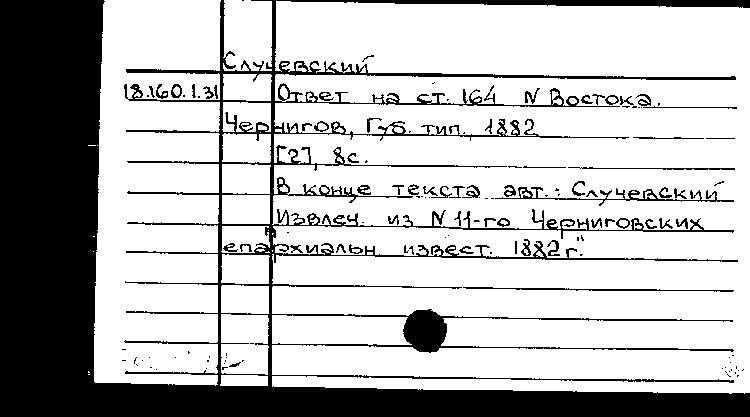 Случевский
18.160.1.31 Ответ на ст. 164 N Востока.
Чернигов, Губ. тип., 1882
[2], 8с.
В конце текста авт.: Случевский
Извлеч. из N 11-го Черниговских
епархиальн извест. 1882 г."